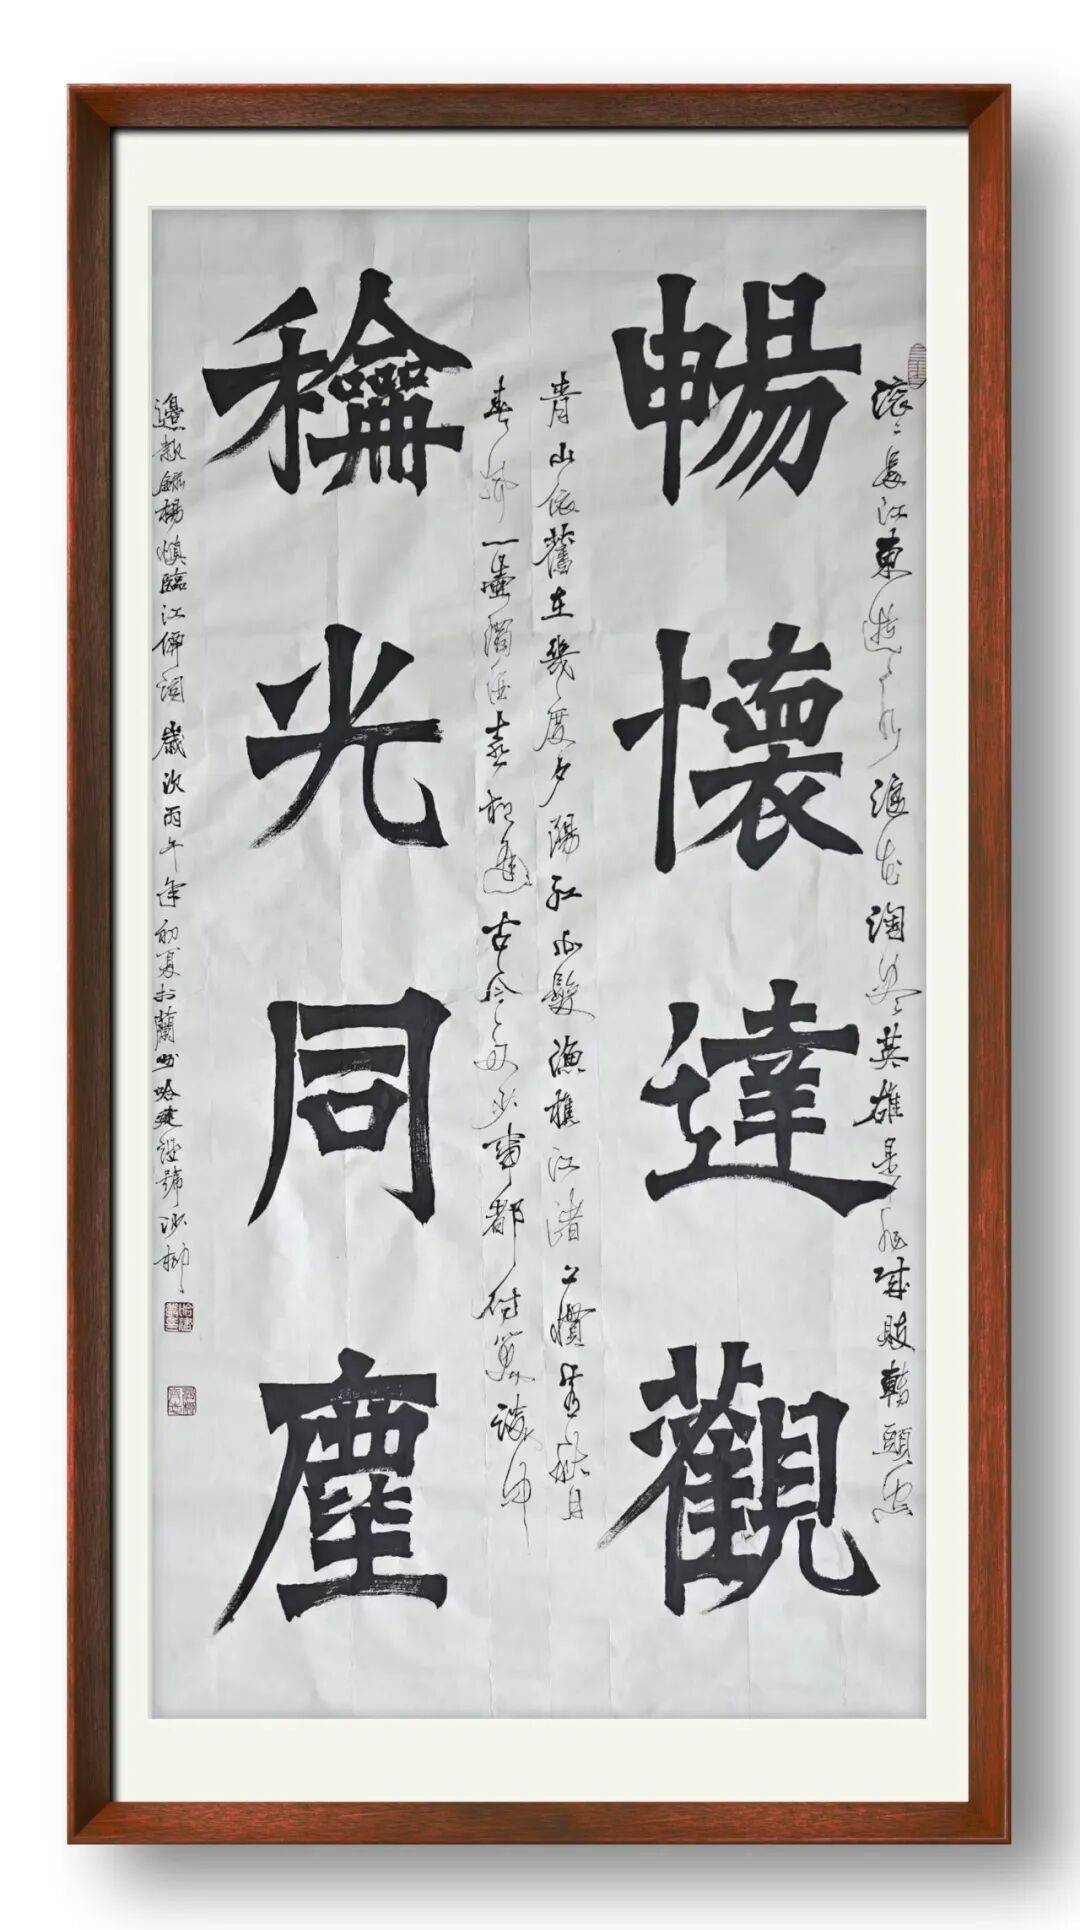 滾々長江東逝水浪花淘盡英雄是非成敗轉頭空
暢懷達觀
青山依舊在幾度夕陽紅白髮漁樵江渚上慣看秋月
春風一壺濁酒喜相逢古今多少事都付笑談中
龢光同塵
邊款錄楊慎臨江僊詞歲次丙午年初夏於蘭州哈建設號沙柳